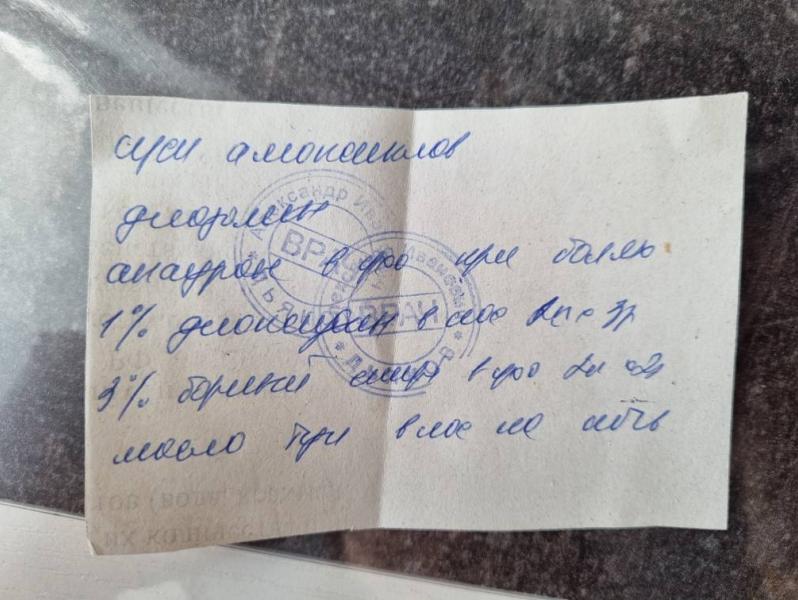 сусп амоксиклов
диазолин
анауран в ухо при болях
1% диоксидин в нос 2к 3р
3% борный спирт в ухо 2к 2р
масло туи в нос на ночь
Александр Иванович
ВРАЧ
ВРАЧ